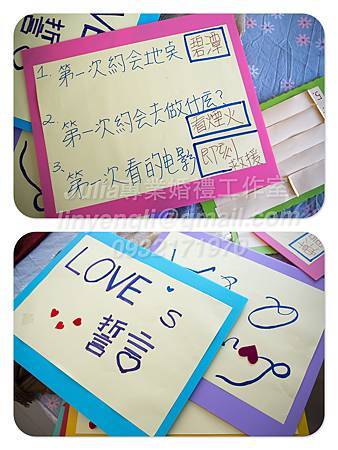 誓言
1. 第一次約会地桌 碧潭
2. 第一次約会去做什么? 看煙火
3. 第一次看的电影 即刻救援
Julia專業婚禮工作室
jinvengli@gmail.com
0932171970
LOVE's
誓言